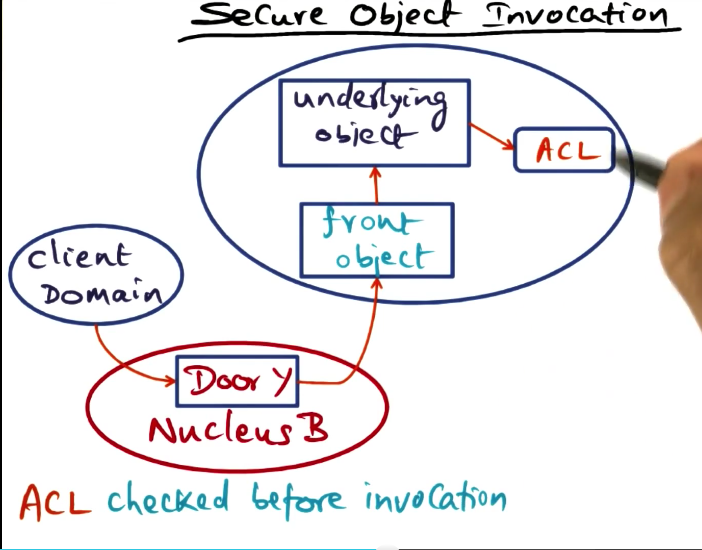 Secure Object Invocation
underlying
object
ACL
front
object
client
Domain
Door Y
Nucleus B
ACL checked before invocation